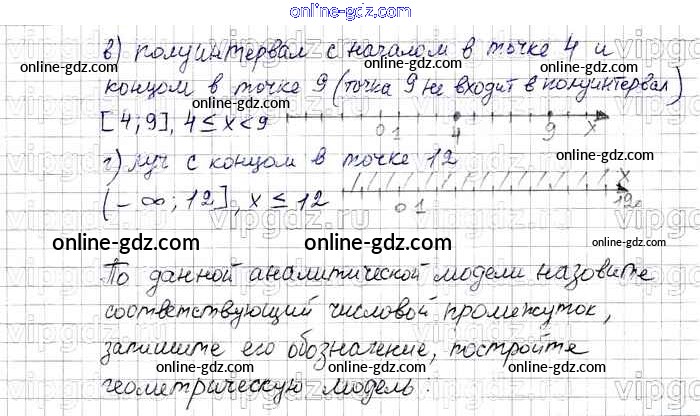 online-gdz.com
в) полуинтервал с началом в точке 4 и
online-gdz.com online-gdz.com online-gdz.com
концом в точке 9 (точка 9 не входит в полуинтервал)
[4;9], 4 ≤ x < 9 0 1 4 9 x
г) луч с концом в точке 12 online-gdz.com
online-gdz.com
(-∞; 12], x ≤ 12 0 1 12 x
online-gdz.com online-gdz.com online-gdz.com
По данной аналитической модели назовите
online-gdz.com online-gdz.com online-gdz.com
соответствующий числовой промежуток,
запишите его обозначение, постройте
online-gdz.com online-gdz.com online-gdz.com
геометрическую модель: